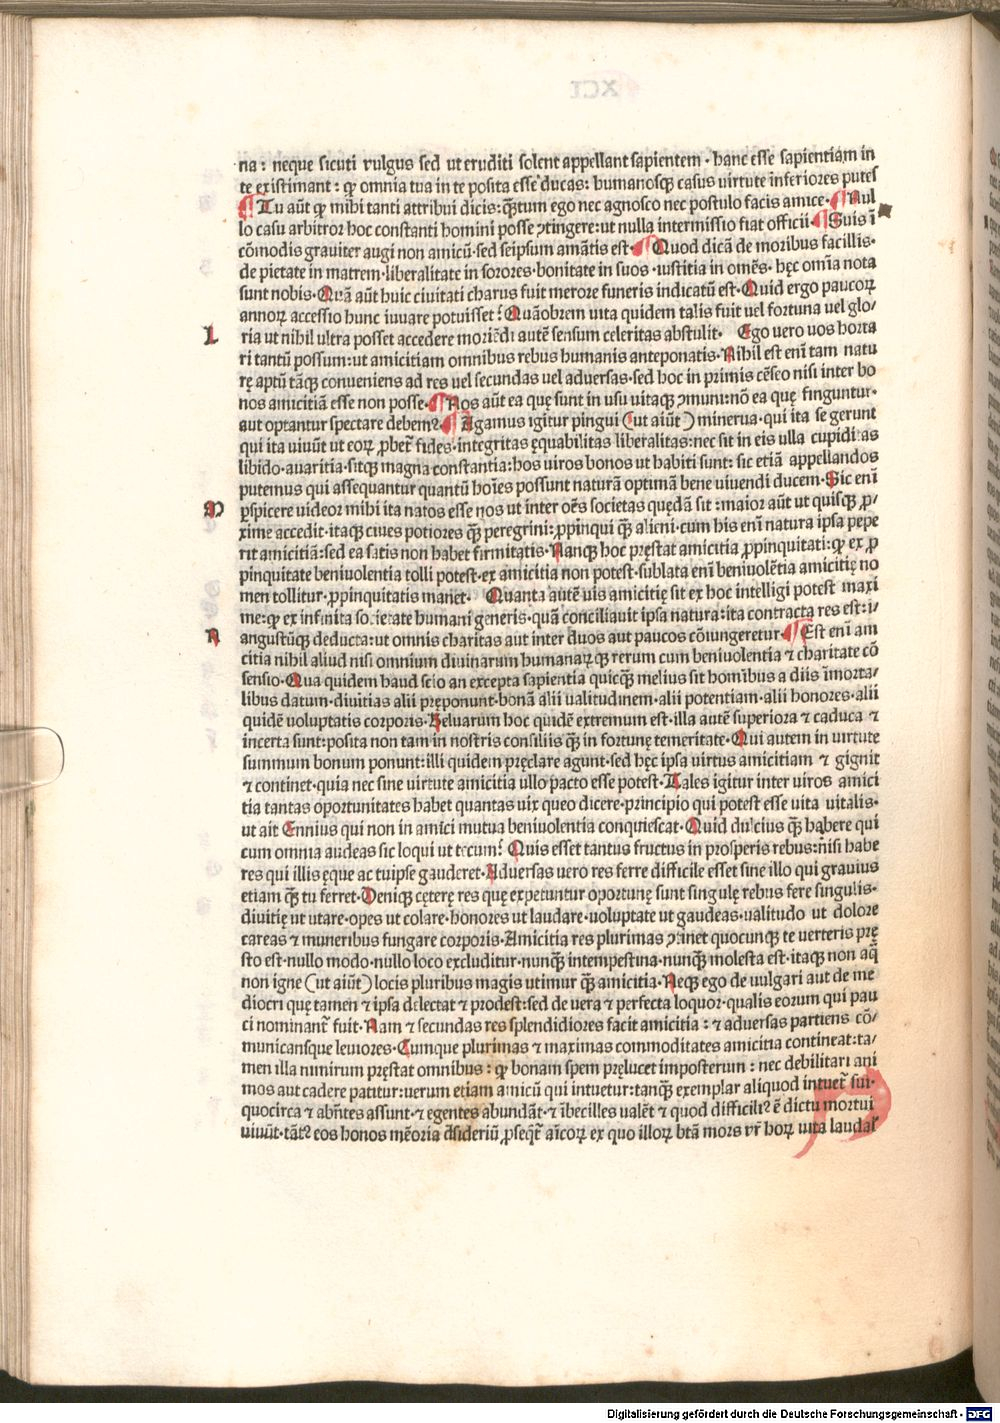 na: neque sicuti vulgus sed ut eruditi solent appellant sapientem· hanc esse sapientiam in
te existimant: qꝫ omnia tua in te posita esse ducas: humanosqꝫ casus virtute inferiores putes
Tu aūt qꝫ mihi tanti attribui dicis: qꝫtum ego nec agnosco nec postulo facis amice· Nul
lo casu arbitror hoc constanti homini posse ꝯtingere: ut nulla intermissio fiat officii· Suis ī
cōmodis graviter augi non amicū·sed seipsum amātis est· Quod dicā de moribus facillis·
de pietate in matrem·liberalitate in sorores·bonitate in suos·iustitia in omēs· hęc omīa nota
sunt nobis·Quā aūt huic civitati charus fuit merore funeris indicatū est·Quid ergo paucoꝝ
annoꝝ accessio hunc iuvare potuisset? Quāobrem vita quidem talis fuit uel fortuna uel glo/
L ria ut nihil ultra posset accedere moriēdi autē sensum celeritas abstulit· Ego uero uos horta
ri tantū possum:ut amicitiam omnibus rebus humanis anteponatis·Nihil est enī tam natu
rę aptū tāqꝫ conveniens ad res uel secundas uel adversas·sed hoc in primis cēseo nisi inter bo
nos amicitiā esse non posse· Nos aūt ea quę sunt in usu uitaqꝫ ꝯmuni:nō ea quę finguntur·
aut optantur spectare debem9· Agamus igitur pingui (ut aiūt) minerua·qui ita se gerunt
qui ita uiuūt ut eoꝝ ꝓbet̄ fides·integritas ęquabilitas liberalitas:nec sit in eis ulla cupiditas
libido·auaritia·sitqꝫ magna constantia:hos uiros bonos ut habiti sunt: sic etiā appellandos
putemus qui assequantur quantū hoīes possunt naturā optimā bene uiuendi ducem·Sic enī
M ꝑspicere uideor mihi ita natos esse nos ut inter oēs societas quędā sit:maior aūt ut quisqꝫ ꝓ/
xime accedit·itaqꝫ ciues potiores qꝫ̄ peregrini:ꝓpinqui qꝫ̄ alieni·cum his enī natura ipsa pepe
rit amicitiā:sed ea satis non habet firmitatis·Nanqꝫ hoc pręstat amicitia ꝓpinquitati:qꝫ ex ꝓ
pinquitate beniuolentia tolli potest·ex amicitia non potest·sublata enī beniuolētia amicitię no
men tollitur·ꝓpinquitatis manet· Quanta autē uis amicitię sit ex hoc intelligi potest maxi
me:qꝫ ex infinita societate humani generis·quā conciliauit ipsa natura:ita contracta res est:ī/
N angustūqꝫ deducta:ut omnis charitas aut inter duos aut paucos cōiungeretur· Est enī am
citia nihil aliud nisi omnium diuinarum humanaꝝqꝫ rerum cum beniuolentia ⁊ charitate cō
sensio·Qua quidem haud scio an excepta sapientia quicqꝫ̄ melius sit homībus a diis īmorta/
libus datum·diuitias alii pręponunt·bonā alii ualitudinem·alii potentiam·alii honores·alii
quidē uoluptatis corporis·Beluarum hoc quidē extremum est·illa autē superiora ⁊ caduca ⁊
incerta sunt:posita non tam in nostris consiliis qꝫ̄ in fortunę temeritate·Qui autem in uirtute
summum bonum ponunt:illi quidem pręclare agunt·sed hęc ipsa virtus amicitiam ⁊ gignit
⁊ continet·quia nec sine virtute amicitia ullo pacto esse potest·Tales igitur inter viros amici
tia tantas oportunitates habet quantas uix queo dicere·principio qui potest esse vita vitalis·
ut ait Ennius qui non in amici mutua beniuolentia conquiescat·Quid dulcius qꝫ̄ habere qui
cum omnia audeas sic loqui ut tecum? Quis esset tantus fructus in prosperis rebus:nisi habe
res qui illis ęque ac tuipse gauderet·Aduersas uero res ferre difficile esset sine illo qui gravius
etiam qꝫ̄ tu ferret·Deniqꝫ cęterę res quę expetuntur oportunę sunt singulę rebus fere singulis·
diuitię ut utare·opes ut colare·honores ut laudare·uoluptate ut gaudeas·ualitudo ut dolore
careas ⁊ muneribus fungare corporis·Amicitia res plurimas ꝯtinet quocunqꝫ te uerteris prę
sto est·nullo modo·nullo loco excluditur·nunqꝫ̄ intempestina·nunqꝫ̄ molesta est·itaqꝫ non aq̄
non igne (ut aiūt) locis pluribus magis utimur qꝫ̄ amicitia·Neqꝫ ego de uulgari aut de me
diocri quę tamen ⁊ ipsa delectat ⁊ prodest:sed de vera ⁊ perfecta loquor·qualis eorum qui pau
ci nominant̄ fuit·Nam ⁊ secundas res splendidiores facit amicitia: ⁊ adversas partiens cō/
municansque leuiores·Cumque plurimas ⁊ maximas commoditates amicitia contineat:ta/
men illa nimirum pręstat omnibus: qꝫ bonam spem prelucet imposterum: nec debilitari ani
mos aut cadere patitur:uerum etiam amicū qui intuetur:tanqꝫ exemplar aliquod intuet̄ sui·
quocirca ⁊ abn̄tes assunt·⁊ egentes abundāt·⁊ ībecilles ualēt ⁊ quod difficili9 ē dictu mortui
uiuūt·tāt9 eos honos mēoria dsideriū ꝓseqt̄ aīcoꝝ ex quo illoꝝ btā mors vr̄ hoꝝ uita laudal̄
Digitalisierung gefördert durch die Deutsche Forschungsgemeinschaft - DFG